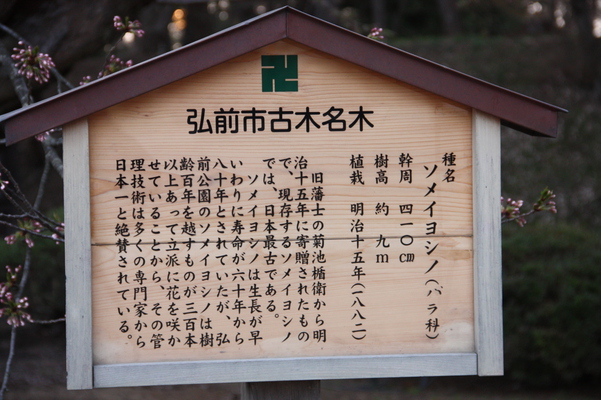 卍
弘前市古木名木
種名
ソメイヨシノ(バラ科)
幹周 四一〇㎝
樹高 約 九m
植栽 明治十五年(一八八二)
旧藩士の菊池楯衛から明
治十五年に寄贈されたもの
で、現存するソメイヨシノ
では、日本最古である。
ソメイヨシノは生長が早
いわりに寿命が六十年から
八十年とされていたが、弘
前公園のソメイヨシノは樹
齢百年を越すものが三百本
以上あって立派に花を咲か
せていることから、その管
理技術は多くの専門家から
日本一と絶賛されている。